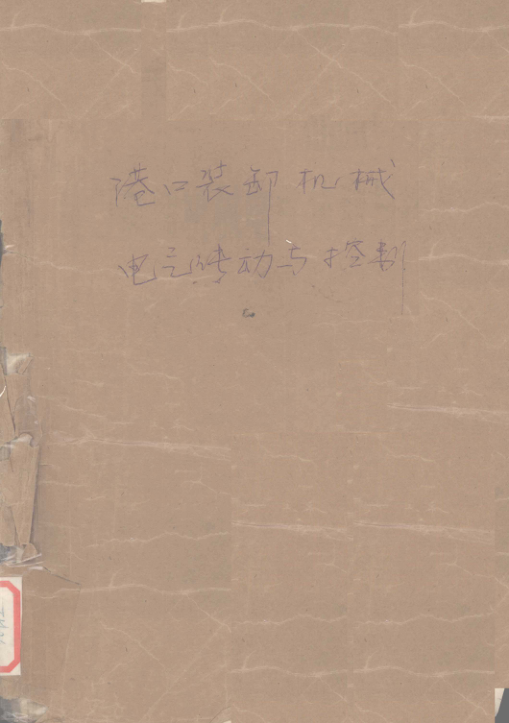 港口装卸机械
电气传动与控制